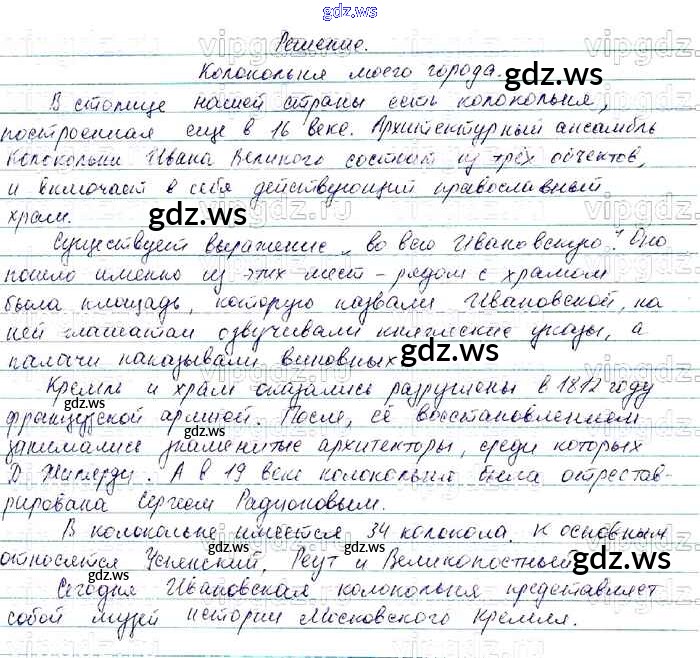 gdz.ws
Решение.
Колокольня моего города.
В столице нашей страны есть колокольня,
построенная еще в 16 веке. Архитектурный ансамбль
Колокольни Ивана Великого состоит из трёх объектов,
и включает в себя действующий православный
храм.
Существует выражение „во всю Ивановскую". Оно
пошло именно из этих мест – рядом с храмом
была площадь, которую назвали Ивановской, на
ней глашатаи озвучивали княжеские указы, а
палачи наказывали виновных
Кремль и храм оказались разрушены в 1812 году
французской армией. После, её восстановлением
занимались знаменитые архитекторы, среди которых
Д. Жилярди. А в 19 веке колокольня была отрестав-
рирована Сергеем Радионовым.
В колокольне имеется 34 колокола. К основным
относятся Успенский, Реут и Великопостный
Сегодня Ивановская колокольня представляет
собой музей истории Московского Кремля.